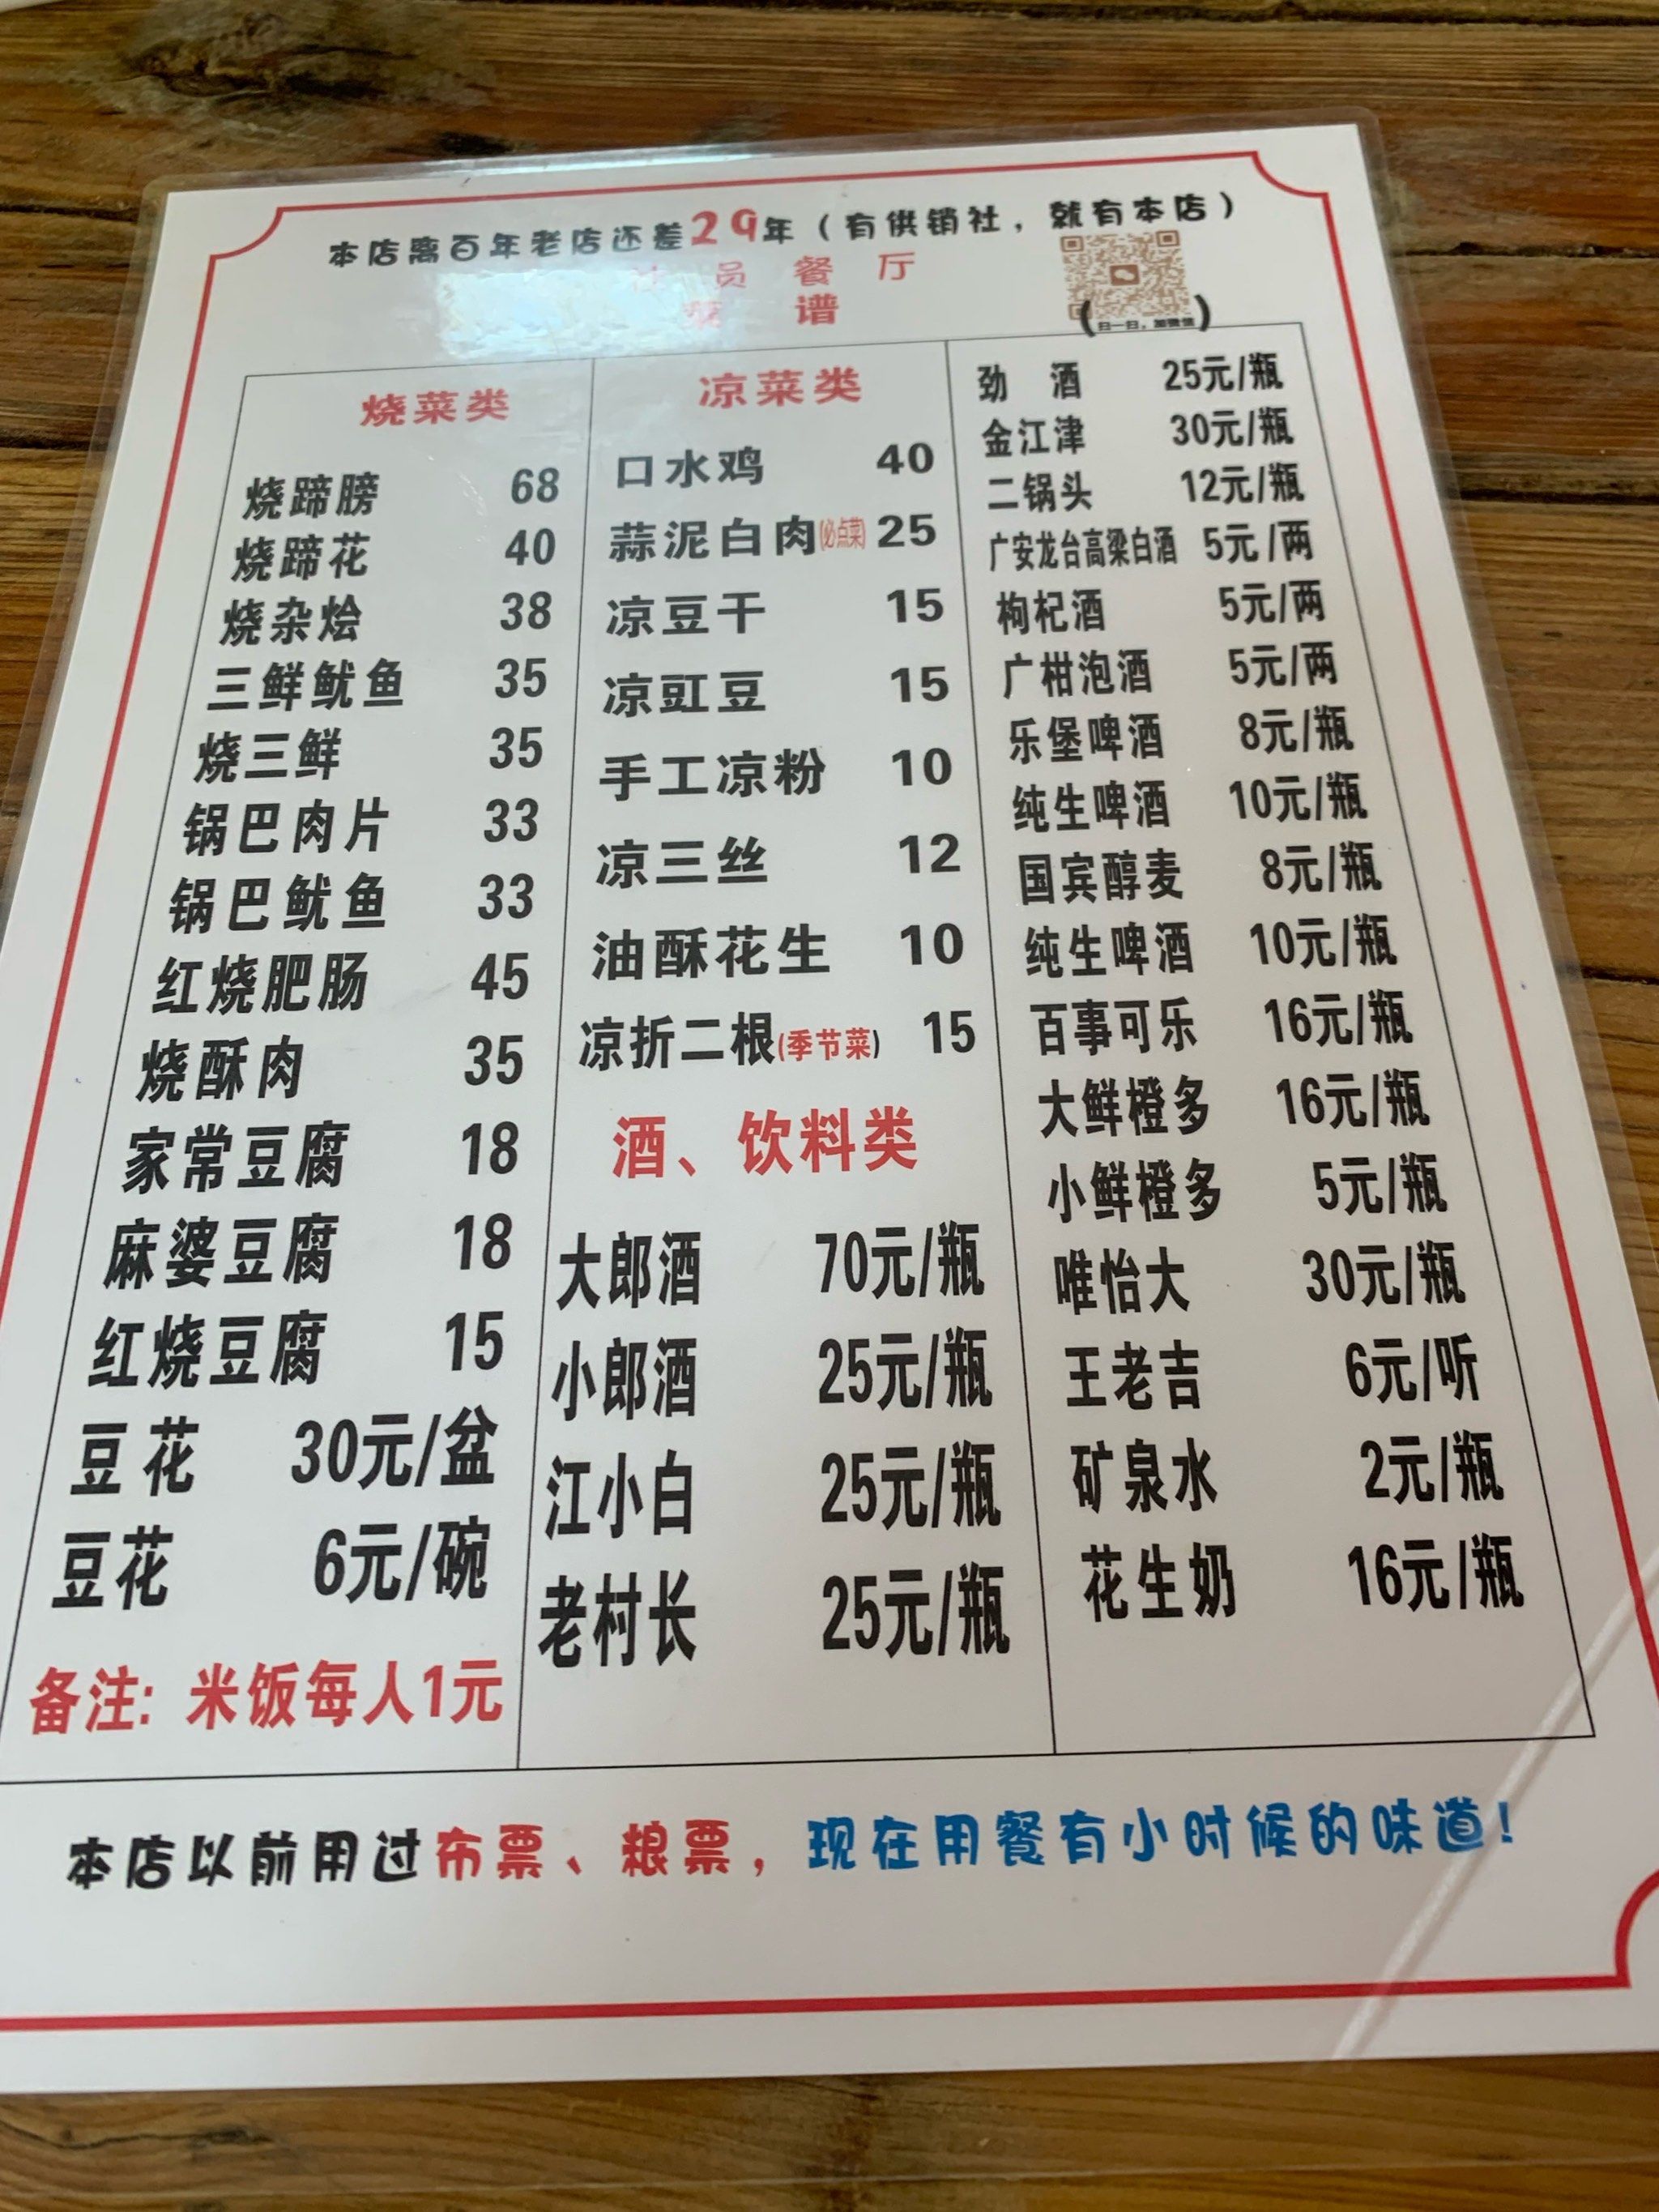 本店离百年老店还差29年（有供销社，就有本店）
社员餐厅
菜谱
（扫一扫，加微信）
烧菜类
烧蹄膀 68
烧蹄花 40
烧杂烩 38
三鲜鱿鱼 35
烧三鲜 35
锅巴肉片 33
锅巴鱿鱼 33
红烧肥肠 45
烧酥肉 35
家常豆腐 18
麻婆豆腐 18
红烧豆腐 15
豆花 30元/盆
豆花 6元/碗
备注：米饭每人1元
凉菜类
口水鸡 40
蒜泥白肉(必点菜) 25
凉豆干 15
凉豇豆 15
手工凉粉 10
凉三丝 12
油酥花生 10
凉折二根(季节菜) 15
酒、饮料类
大郎酒 70元/瓶
小郎酒 25元/瓶
江小白 25元/瓶
老村长 25元/瓶
劲酒 25元/瓶
金江津 30元/瓶
二锅头 12元/瓶
广安龙台高粱白酒 5元/两
枸杞酒 5元/两
广柑泡酒 5元/两
乐堡啤酒 8元/瓶
纯生啤酒 10元/瓶
国宾醇麦 8元/瓶
纯生啤酒 10元/瓶
百事可乐 16元/瓶
大鲜橙多 16元/瓶
小鲜橙多 5元/瓶
唯怡大 30元/瓶
王老吉 6元/听
矿泉水 2元/瓶
花生奶 16元/瓶
本店以前用过布票、粮票，现在用餐有小时候的味道！